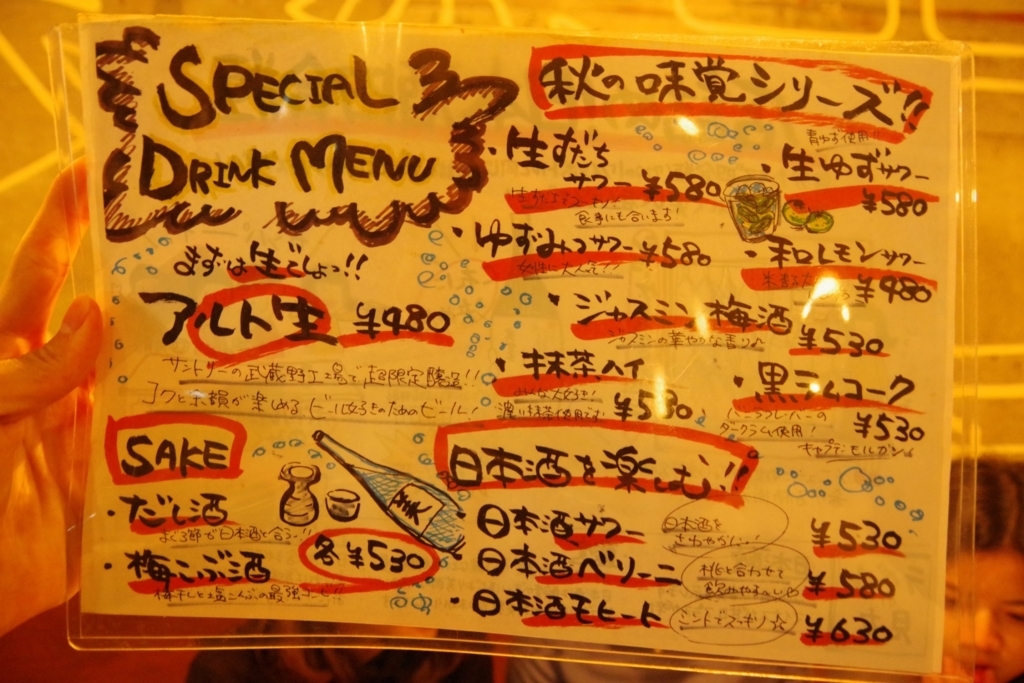 SPECIAL
DRINK MENU
まずは生でしょっ!!
アルト生 ¥980
サントリーの武蔵野工場で超限定醸造!!
コクと余韻が楽しめるビール好きのためのビール!
SAKE
・だし酒
まぐろ節が日本酒と合う!!
・梅こぶ酒
梅干しと塩こんぶの最強コンビ!!
各¥530
美
秋の味覚シリーズ!!
・生すだち
サワー ¥580
食事にも合います!
青ゆず使用!!
・生ゆずサワー
¥580
・ゆずみつサワー ¥580
女性に大人気??
・和レモンサワー
¥480
・ジャスミン梅酒
ジャスミンの華やかな香り♪
¥530
・抹茶ハイ
みんな大好き!
濃い抹茶使用です
¥530
・黒ラムコーク
ダークラム使用!
キャプテンモルガン
¥530
日本酒を楽しむ!!
・日本酒サワー
日本酒を
さわやかに!
¥530
・日本酒ベリーニ
桃と合わせて
飲みやす〜いや
¥580
・日本酒モヒート
ミントでスッキリ☆
¥630